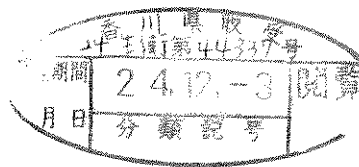 香川県収受
24生衛第44337号
期間
24.12.-3
閲覧
月日
分類記号